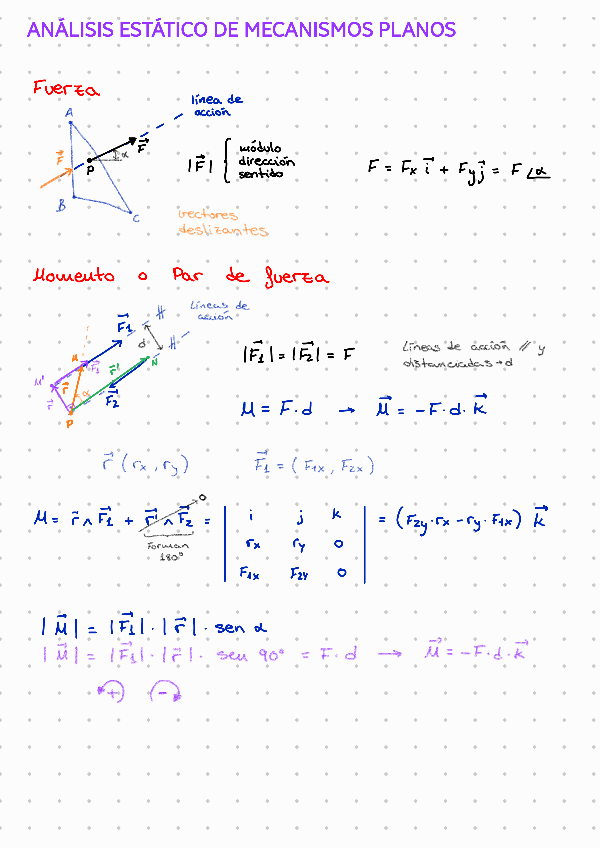 ANÁLISIS ESTÁTICO DE MECANISMOS PLANOS
Fuerza
A
línea de
acción
F⃗
α
F⃗
P
B
C
|F⃗| { módulo
dirección
sentido
F = Fx i⃗ + Fy j⃗ = F ∠α
Vectores
deslizantes
Momento o Par de fuerza
Líneas de
acción
F⃗1
//
d
//
M
F⃗1
r⃗'
N
M'
r⃗
α
F⃗2
r⃗
P
|F⃗1| = |F⃗2| = F
Líneas de acción // y
distanciadas → d
M = F · d → M⃗ = -F · d · k⃗
r⃗ (rx, ry)
F⃗1 = (F1x, F2x)
M = r⃗ ∧ F⃗1 + r⃗' ∧ F⃗2 = | i j k | = (F2y·rx - ry·F1x) k⃗
0
Forman
180°
rx ry 0
F1x F2y 0
|M⃗| = |F⃗1| · |r⃗| · sen α
|M⃗| = |F⃗1| · |r⃗| · sen 90° = F · d → M⃗ = -F · d · k⃗
+ -